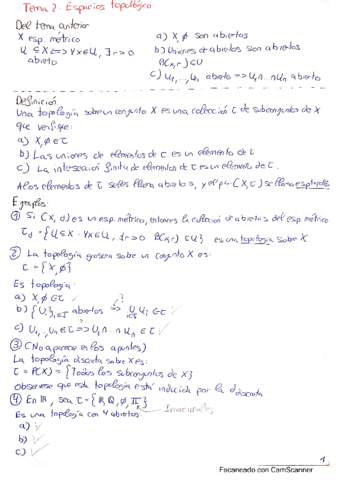 Tema 2: Espacios topológico
Del tema anterior
X esp. métrico
U ⊆ X ⟺ ∀x∈U, ∃r>0
abierto
B(x,r)⊆U
a) X,∅ son abiertos
b) Uniones de abiertos son abiertos
c) U₁,...,Uₙ abierto ⟹ U₁∩...∩Uₙ abierto
Definición
Una topología sobre un conjunto X es una colección τ de subconjuntos de X
que verifique:
a) X,∅∈τ
b) Las uniones de elementos de τ es un elemento de τ
c) La intersección finita de elementos de τ es un elemento de τ.
A los elementos de τ se les llama abiertos, y el par (X,τ) se llama
Ejemplos:
① Si (X,d) es un esp. métrico, entonces la colección de abiertos del esp. métrico
τd = {U⊆X : ∀x∈U, ∃r>0 B(x,r)⊆U} es una topología sobre X
② La topología grosera sobre un conjunto X es:
τ = {X,∅}
Es topología:
a) X,∅∈τ ✓
b) {Uᵢ}ᵢ∈I abiertos ⟹? ∪ᵢ∈I Uᵢ ∈ τ ✓
c) U₁,...,Uₙ∈τ ⟹? U₁∩...∩Uₙ∈τ ✓
③ (No aparece en los apuntes)
La topología discreta sobre X es:
τ = P(X) = {Todos los subconjuntos de X}
Observese que esta topología está inducida por la d discreta
④ En ℝ, sea τ = {ℝ,ℚ,∅,𝕀} Irracionales
Es una topología con 4 abiertos:
a) ✓
b) ✓
c) ✓
1
Escaneado con CamScanner